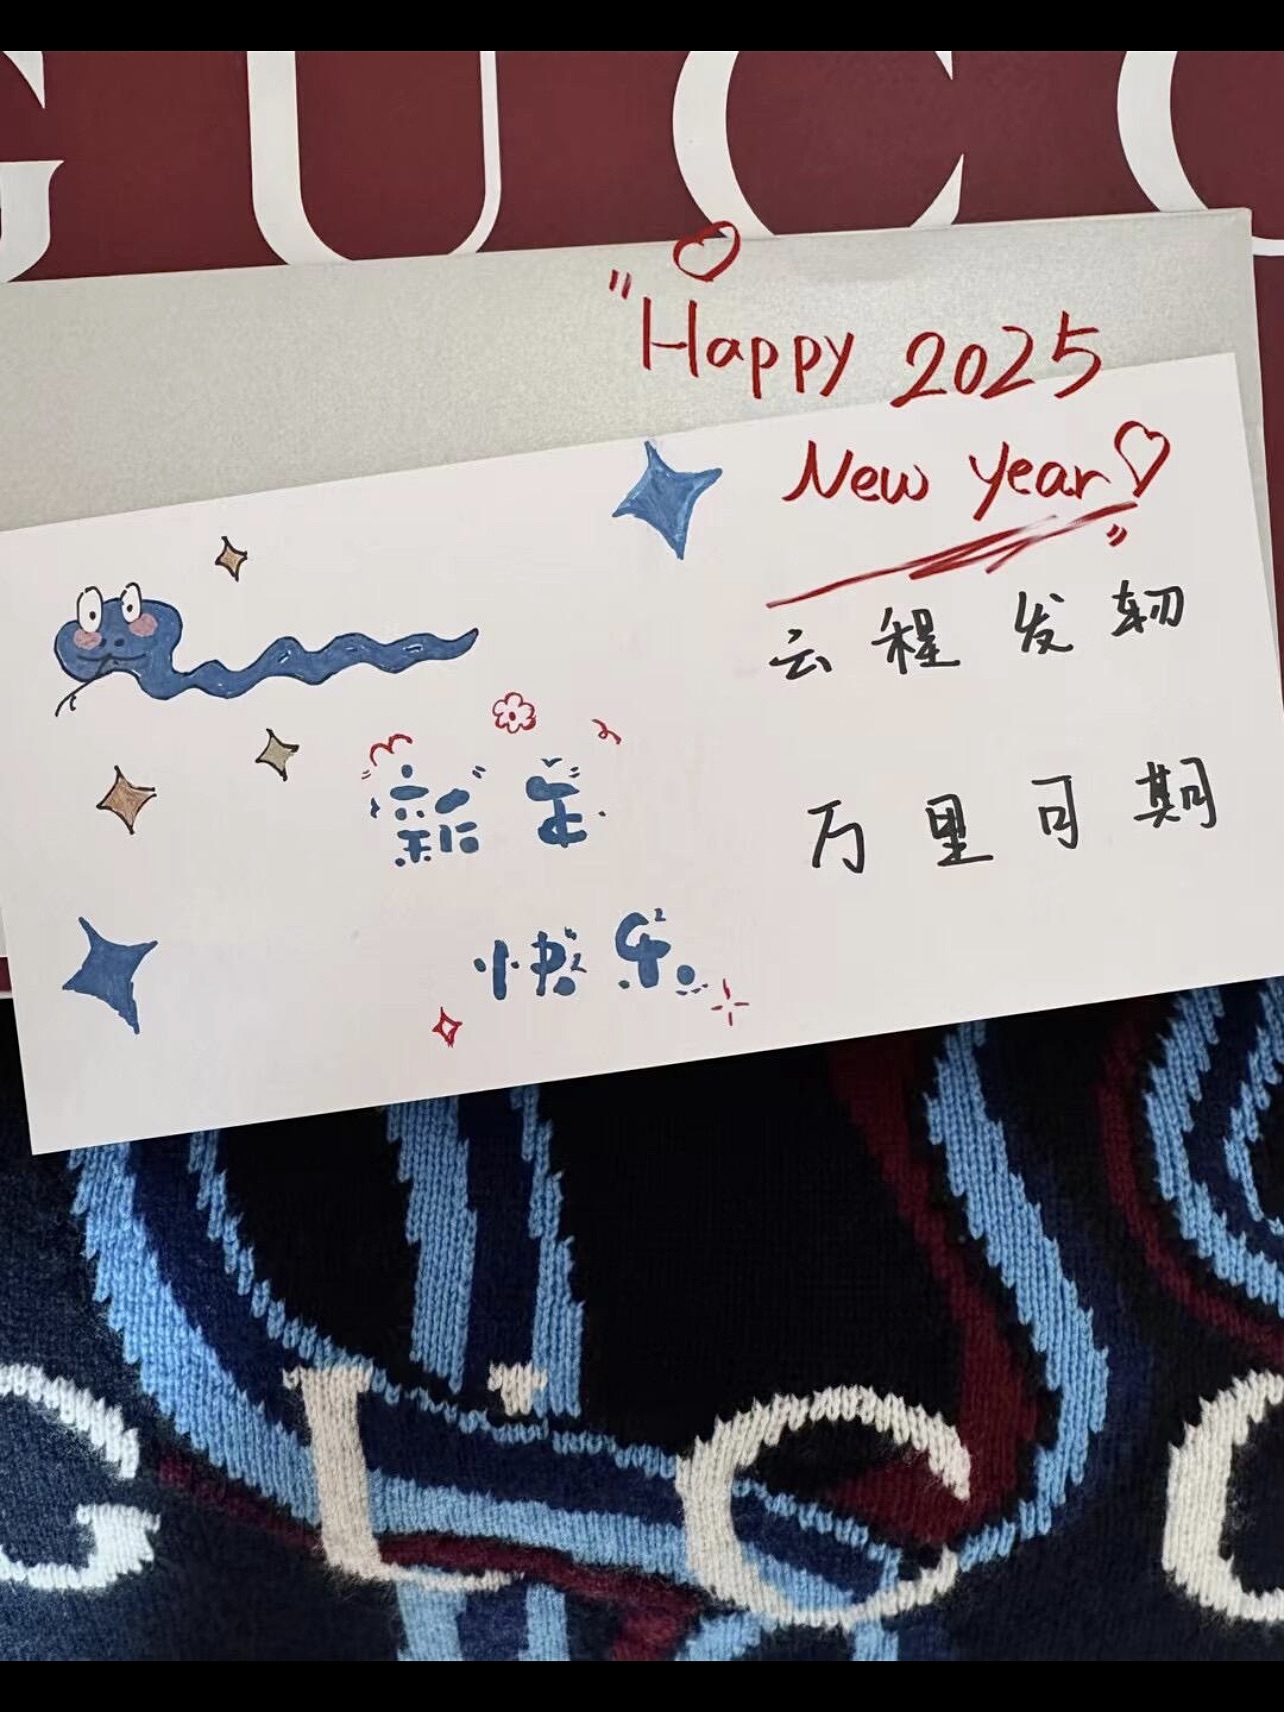 GUCC
"Happy 2025
New Year"
云程发轫
万里可期
新年
快乐
GUCC